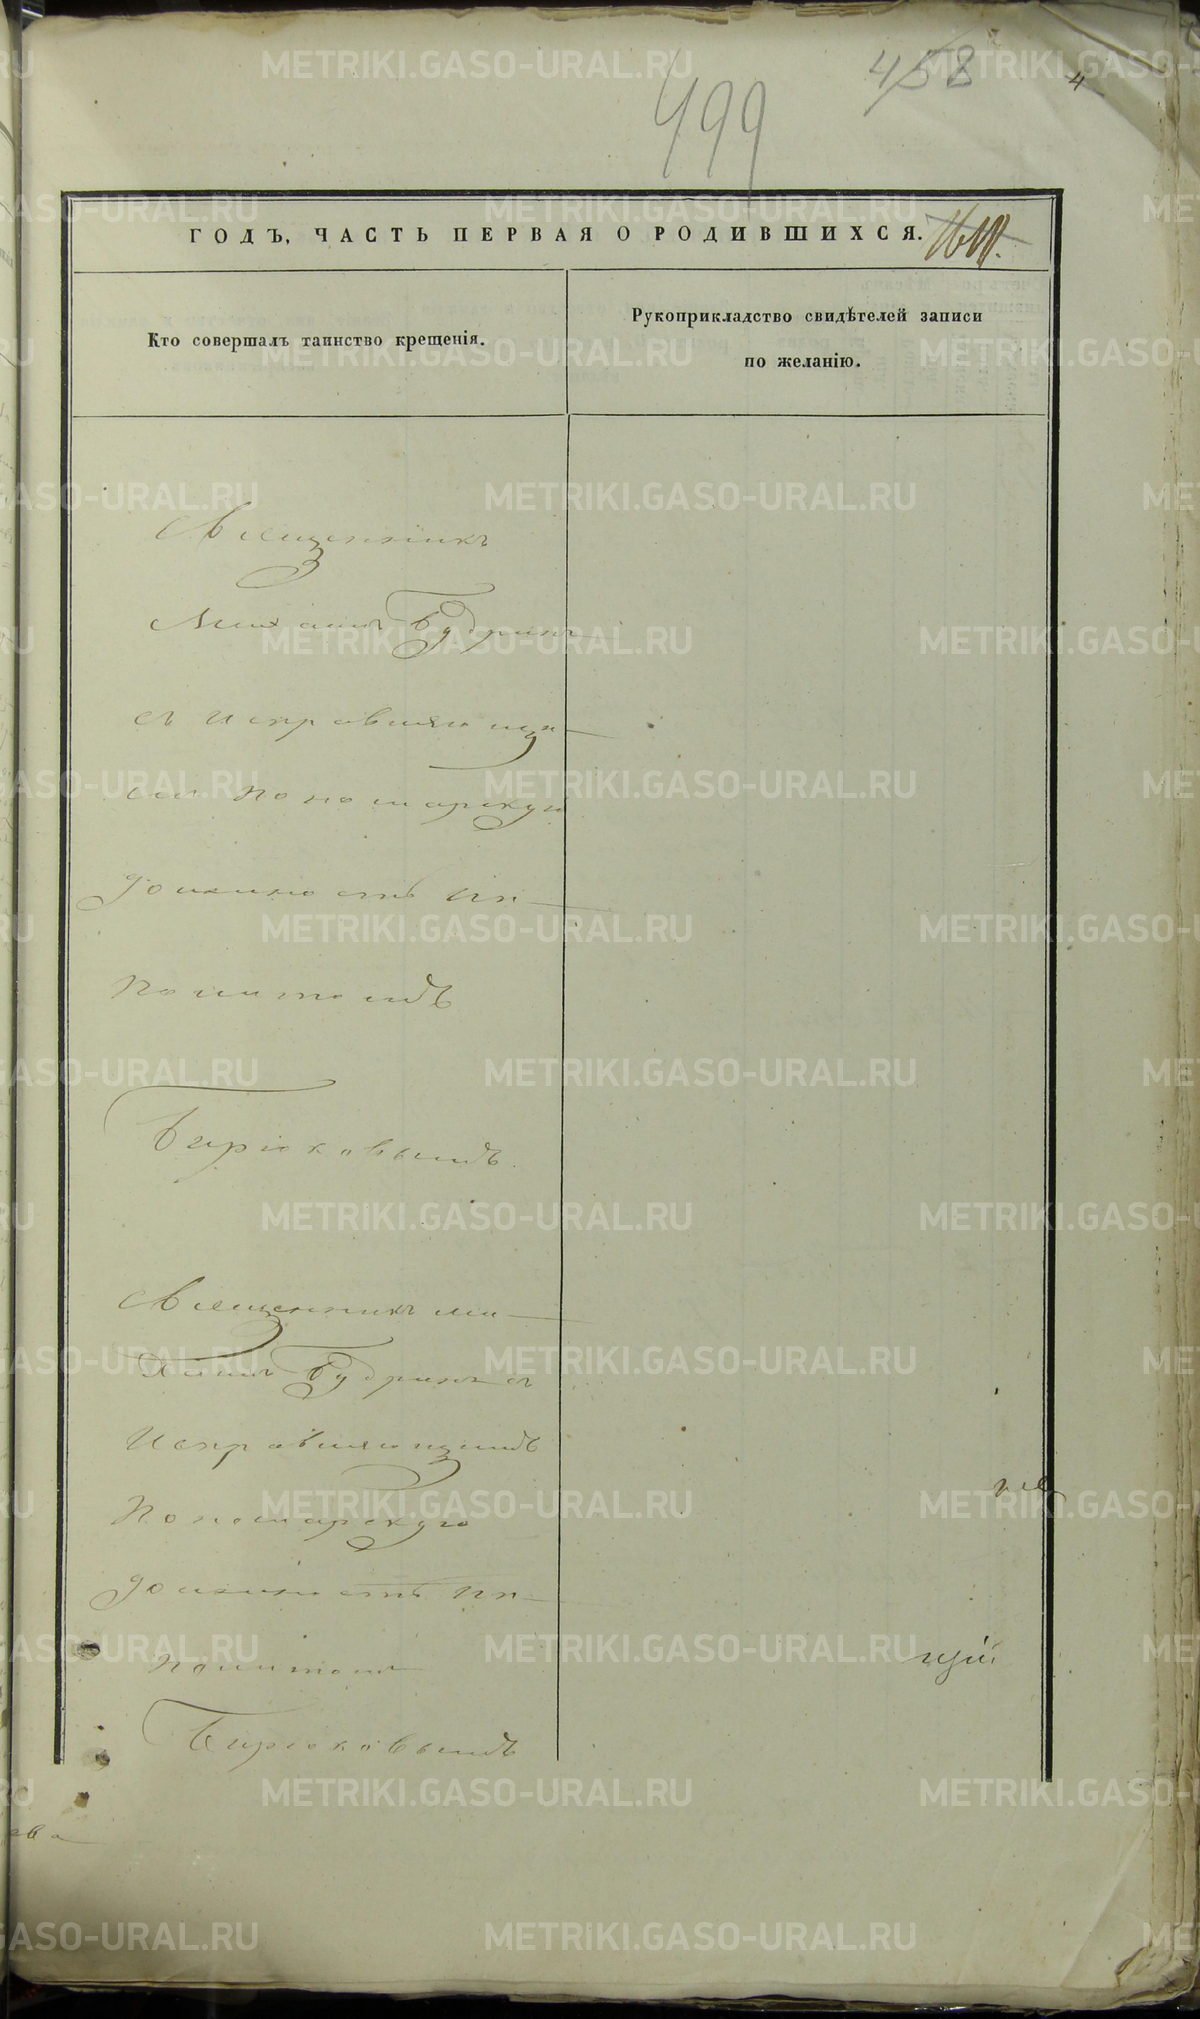 458
4
499
ГОДЪ, ЧАСТЬ ПЕРВАЯ О РОДИВШИХСЯ.
Кто совершалъ таинство крещенія.
Рукоприкладство свидѣтелей записи
по желанію.
Священникъ
Михаилъ Будринъ
съ исправляющи-
мъ Пономарскую
должность Ип-
политомъ
Бирюковымъ.
Священникъ Ми-
хаилъ Будринъ съ
Исправляющимъ
Пономарскую
должность Ип-
политомъ
Бирюковымъ
щій
ева
METRIKI.GASO-URAL.RU